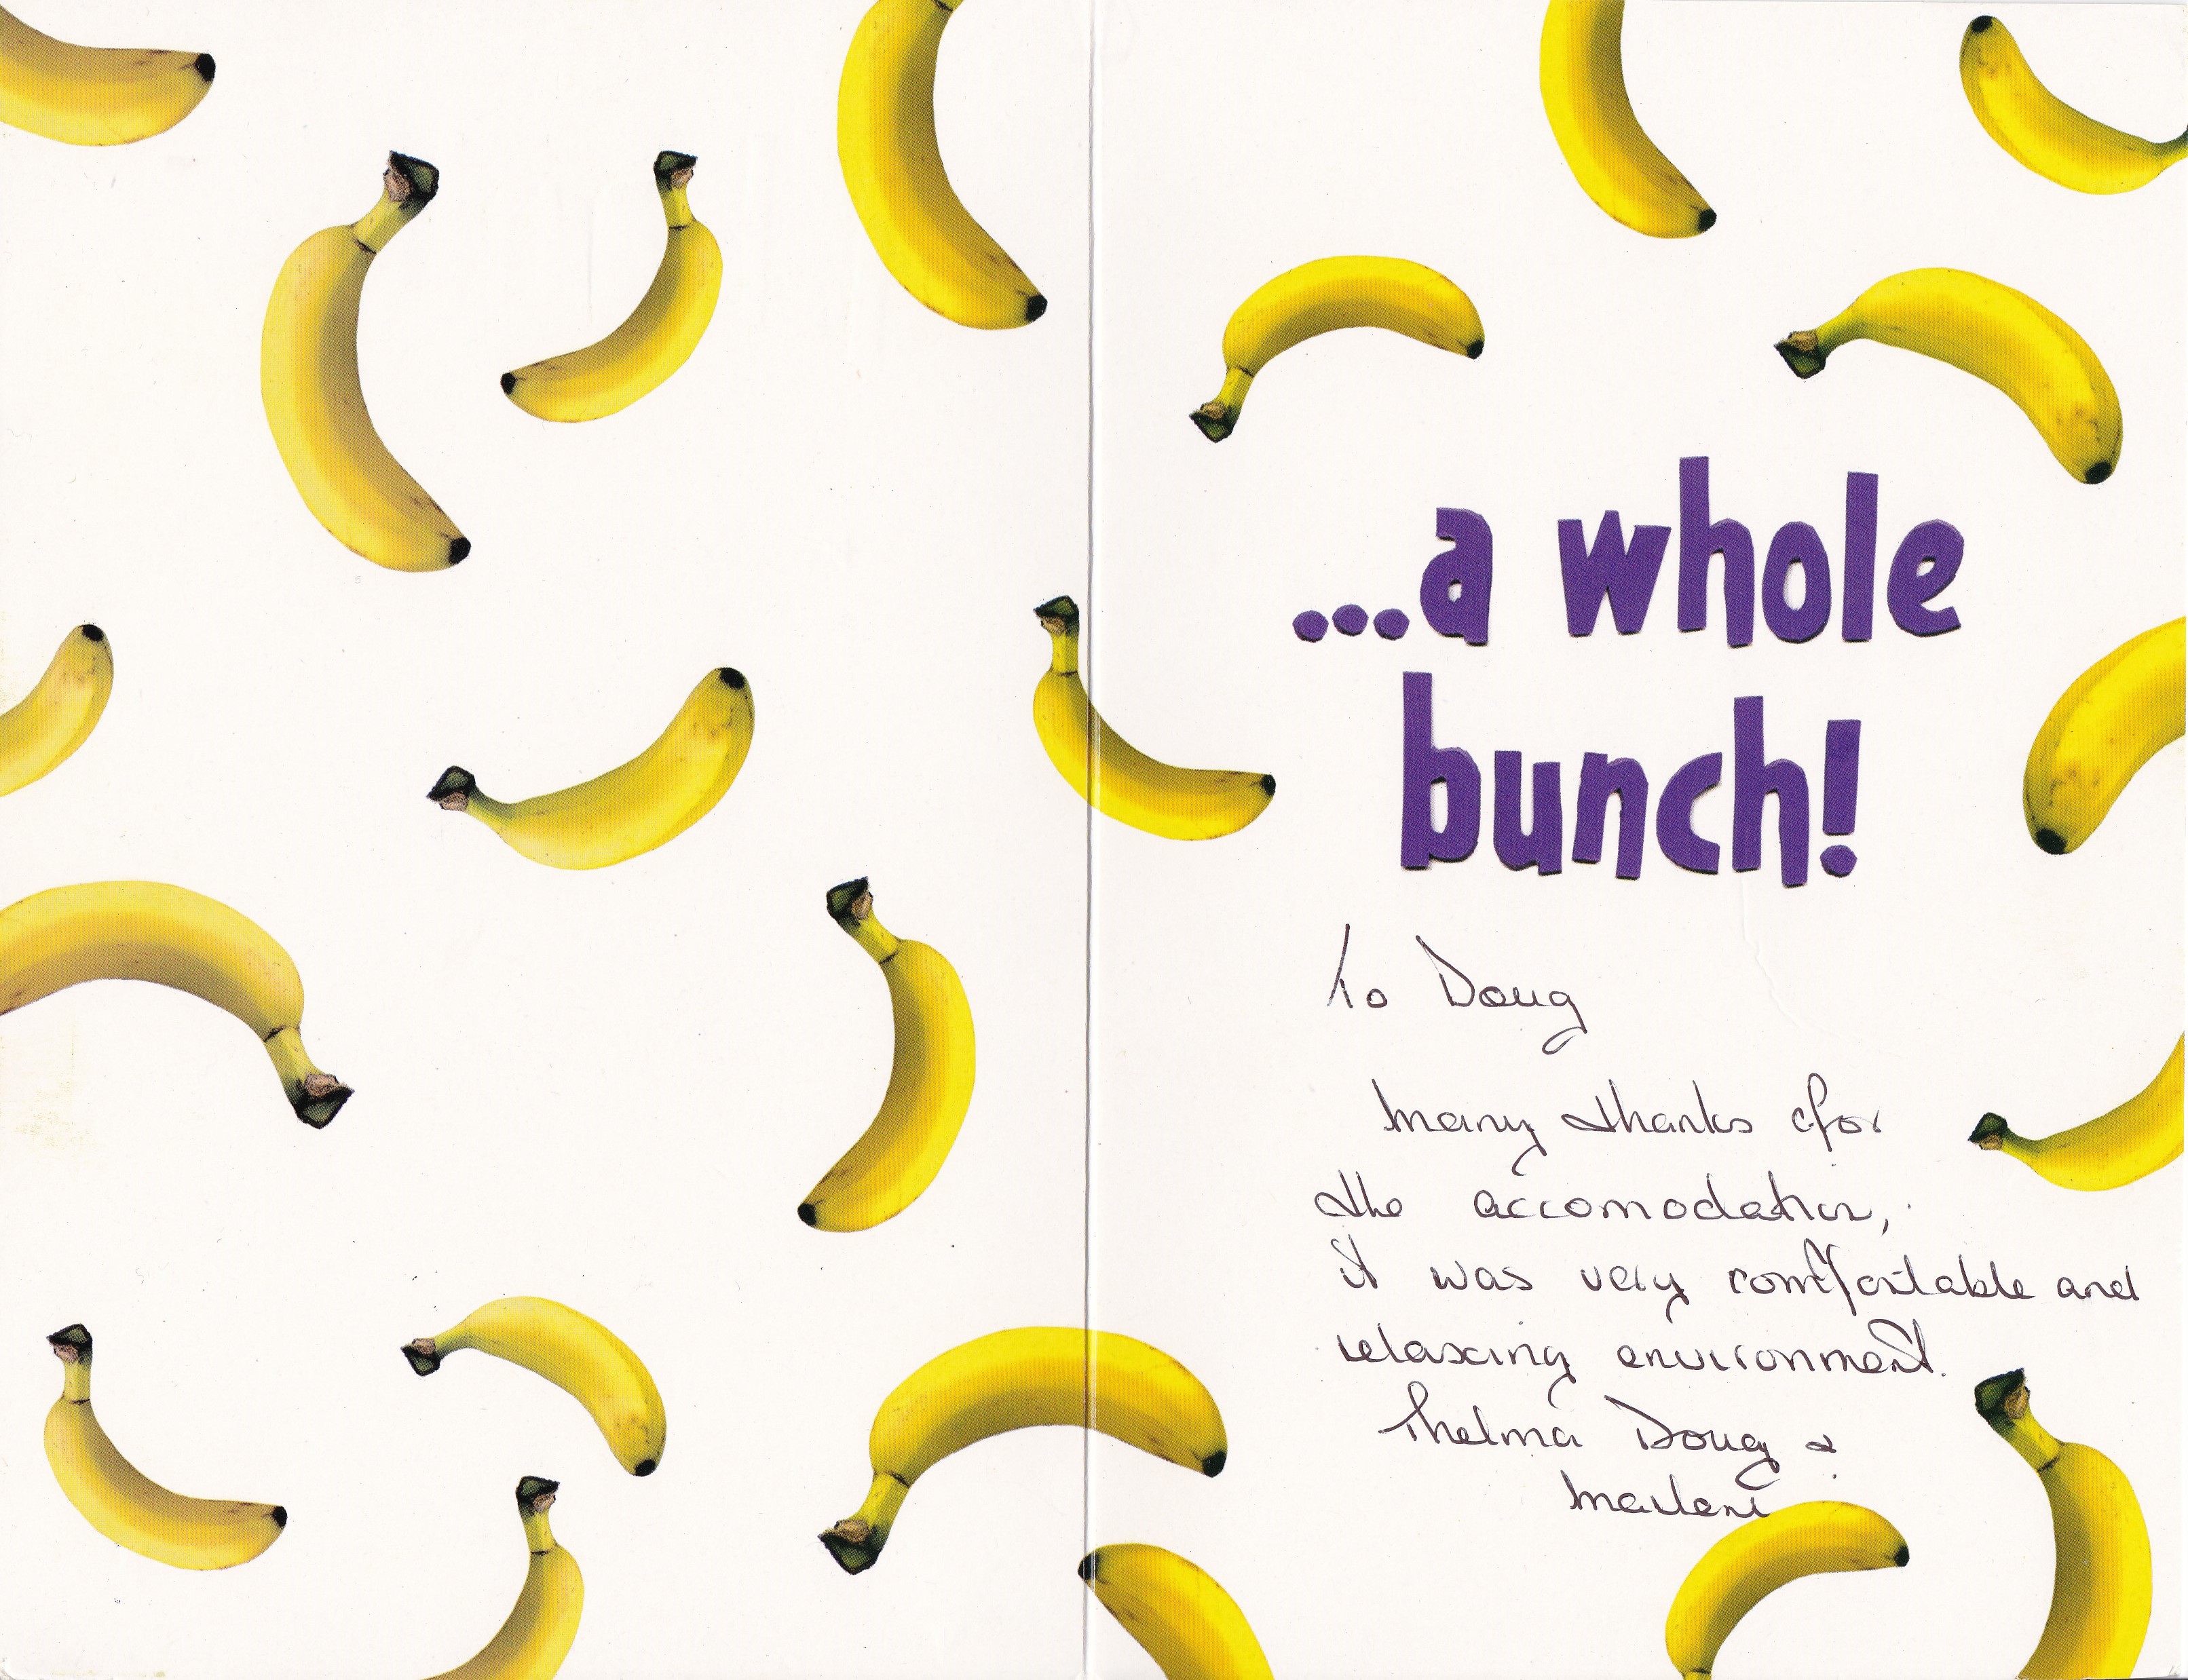 ...a whole
bunch!
To Doug
Many thanks for
the accomodation,
it was very comfortable and
relaxing environment.
Thelma Doug &
Marleni